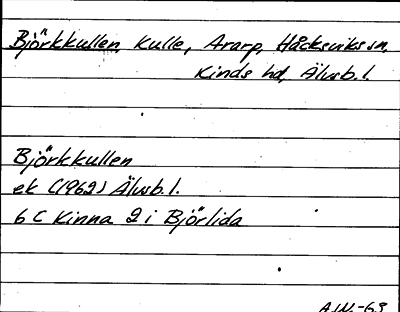 Björkkullen, Kulle, Ararp, Håcksviks sn,
Kinds hd, Älvsb. l.
Björkkullen
ek (1962) Älvsb. l.
6 C Kinna 2 i Björlida